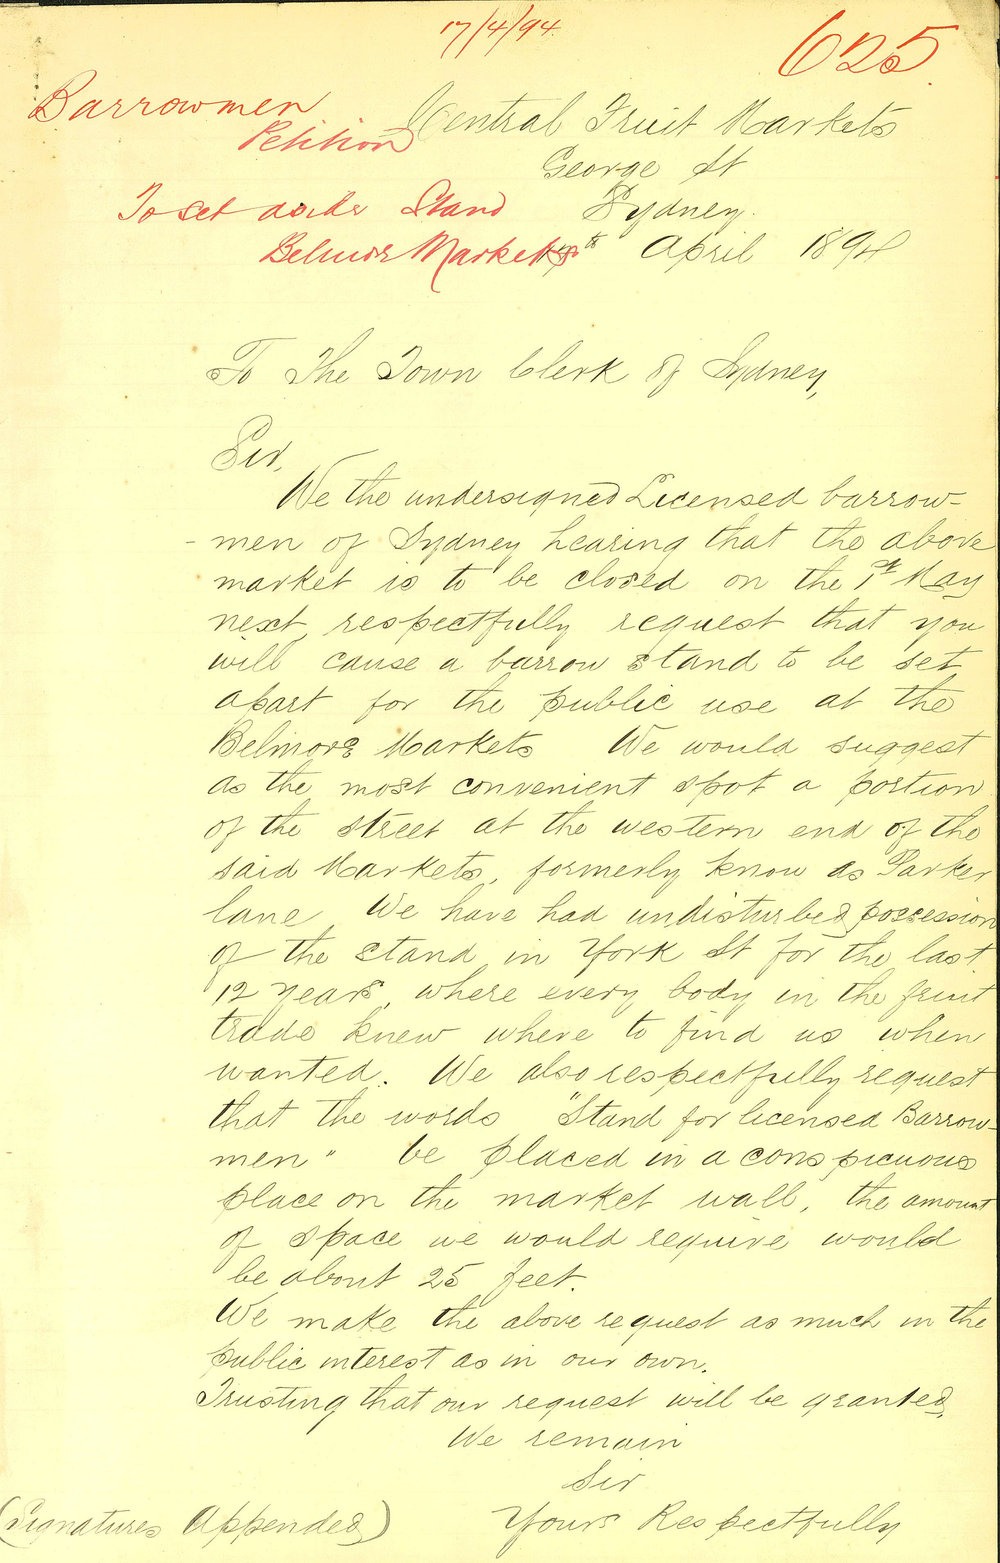 17/4/94
625
Barrowmen
Petition
To set aside Stand
Belmore Markets
Central Fruit Markets
George St
Sydney.
th April 1894
To The Town Clerk of Sydney,
Sir,
We the undersigned Licensed barrow-
men of Sydney hearing that the above
market is to be closed on the 1st May
next, respectfully request that you
will cause a barrow stand to be set
apart for the public use at the
Belmore Markets We would suggest
as the most convenient spot a portion
of the street at the western end of the
said Markets, formerly know as Parker
lane We have had undisturbed possession
of the stand in York St for the last
12 years, where every body in the fruit
trade knew where to find us when
wanted. We also respectfully request
that the words "Stand for licensed Barrow-
men" be placed in a conspicuous
place on the market wall, the amount
of space we would require would
be about 25 feet.
We make the above request as much in the
public interest as in our own.
Trusting that our request will be granted,
We remain
Sir
Yours Respectfully
(Signatures Appended)